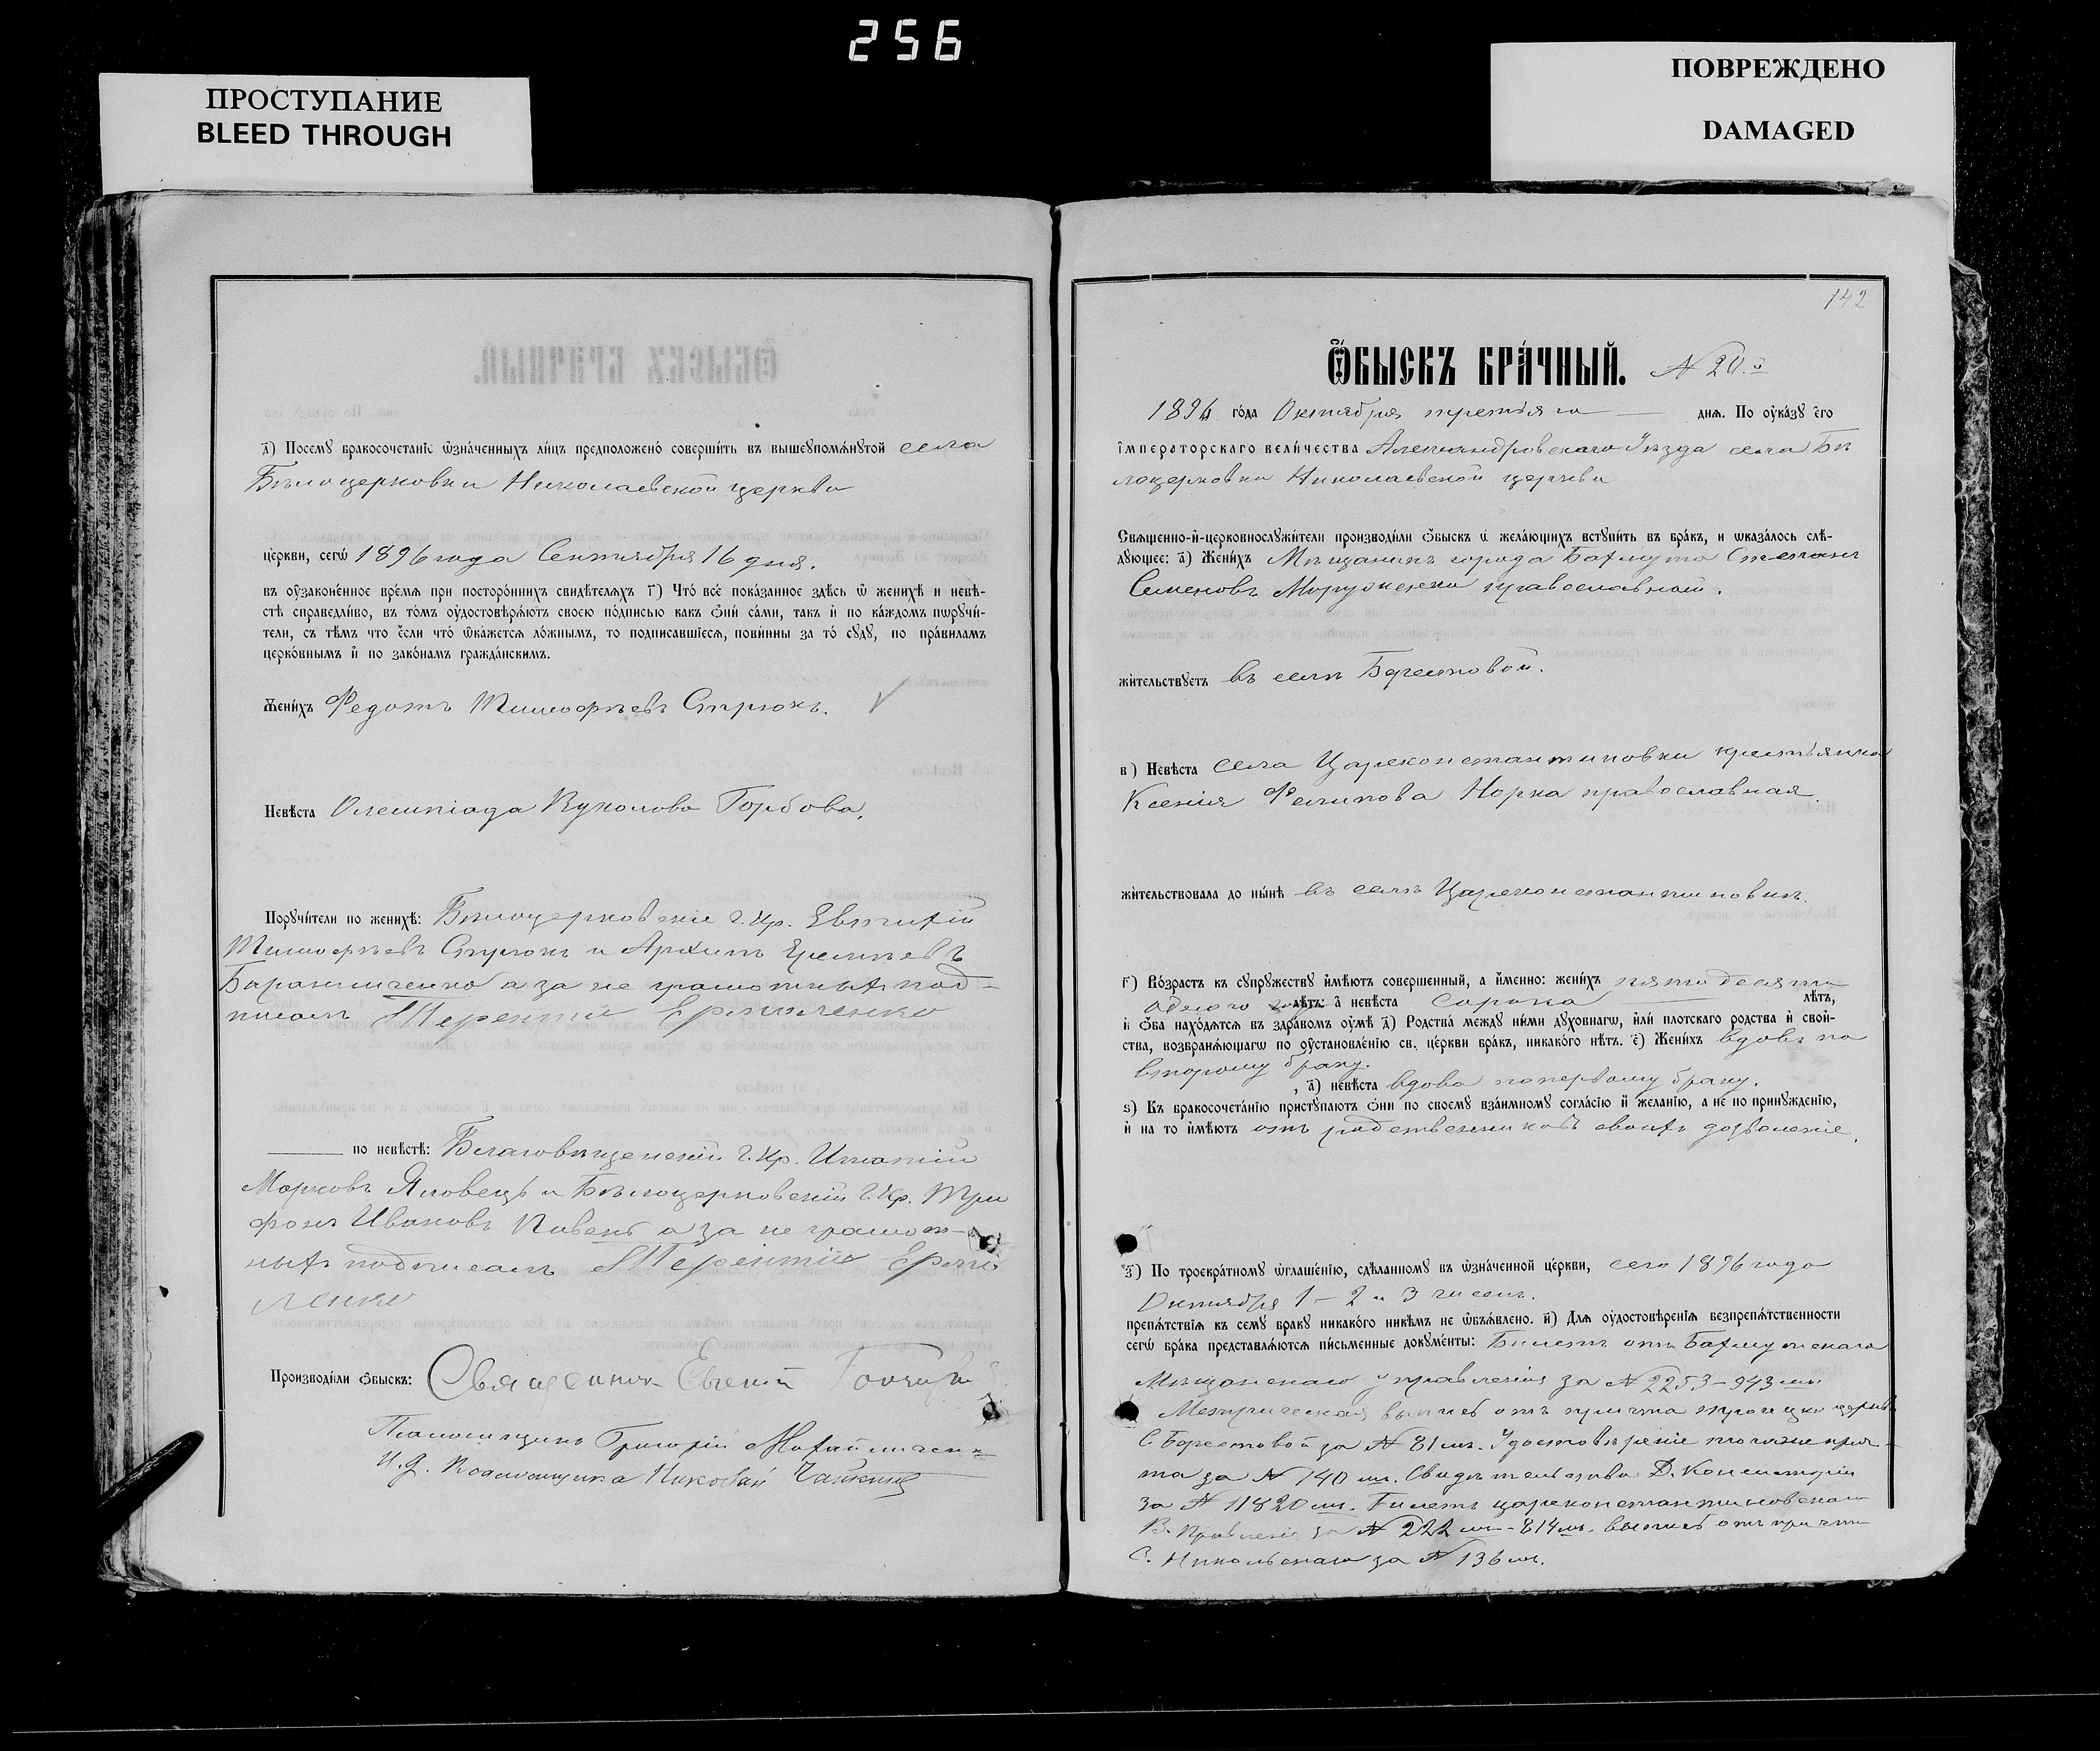 256
ПРОСТУПАНИЕ
BLEED THROUGH
ПОВРЕЖДЕНО
DAMAGED
з҃) Посемꙋ бракосочетаніе ѡзна́ченныхъ ли́цъ предположено̀ соверши́ть въ вышеꙋпомѧ́нꙋтой села
Бѣлоцерковки Николаевской церкви
це́ркви, сегѡ̀ 1896 года Сентября 16 дня.
въ оу҆зако́ненное вре́мѧ при посторо́ннихъ свидѣ́телѧхъ г҃) Что̀ всѐ пока́занное здѣ́сь ѡ҆ женихѣ̀ и невѣ-
стѣ̀ справедли́во, въ то́мъ оу҆достовѣрѧ́ютъ своею по́дписью какъ ѻ҆нѝ са́ми, такъ и҆ по ка́ждомъ порꙋчи́-
тели, съ тѣ́мъ что е҆́сли что̀ ѡ҆ка́жетсѧ ло́жнымъ, то подписавшіесѧ, пови́нны за то̀ сꙋдꙋ̀, по пра́виламъ
церко́внымъ и҆ по зако́намъ гражда́нскимъ.
Жени́хъ Федотъ Тимофѣевъ Стрюкъ.
Невѣ́ста Олимпіада Вуколова Горбова.
Порꙋчи́тели по женихѣ̀: Бѣлоцерковскіе г. кр. Евтихій
Тимофѣевъ Стрюкъ и Архипъ Еремѣевъ
а за не грамотныхъ под-
писалъ Терентий Ермоленко
по невѣ́стѣ: Благовѣщенскій г. кр. Игнатій
Марковъ Яловецъ и Бѣлоцерковскій г. кр. Три
фонъ Ивановъ Пивень а за не грамот-
ныхъ подписалъ Терентий Ермо
ленко
Производи́ли ѻ҆́быскъ: Священникъ Евгений
Псаломщикъ Григорій
И. д. Псаломщика Николай
142
Ѻ҆́БЫСКЪ БРА́ЧНЫЙ. N 20.й
1896 го́да Октября третьяго дня. По оу҆ка́зꙋ є҆гѡ̀
і҆мператорскаго вели́чества Александровскаго Уѣзда села Бѣ
лоцерковки Николаевской церкви
Свѧще́нно-и҆-церковнослꙋжи́тели производи́ли ѻ҆́быскъ ѡ҆ жела́ющихъ встꙋпи́ть въ бра́къ, и ѡ҆каза́лось слѣ́-
дꙋющее: а҃) Жени́хъ Мѣщанинъ города Бахмута Степанъ
Семеновъ православный.
жи́тельствꙋетъ въ селѣ Берестовой.
в҃) Невѣ́ста села Цареконстантиновки крестьянка
Ксенія Филипова Норка православная
жи́тельствовала до ны́нѣ въ селѣ Цареконстантиновкѣ.
г҃) Во́зрастъ къ сꙋпрꙋжествꙋ и҆мѣ́ютъ совершенный, а и҆́менно: жени́хъ пятидесяти
одного лѣтъ: а҆ невѣ́ста сорока лѣтъ,
и҆ ѻ҆́ба нахо́дѧтсѧ въ здра́вомъ оу҆мѣ̀ д҃) Родства̀ междꙋ ни́ми дꙋховнагѡ, и҆лѝ плотскаго родства и҆ свой-
ства, возбранѧ́ющагѡ по ꙋ҆становле́нію св. це́ркви бра́къ, никако́го нѣ́тъ. є҃) Жени́хъ вдовъ по
второму браку.
, а҆) невѣ́ста вдова поперваму браку.
ѕ҃) Къ бракосочета́нію пристꙋпа́ютъ ѻ҆нѝ по своемꙋ взаи́мномꙋ согла́сію и҆ жела́нію, а не по принꙋжде́нію,
и҆ на то и҆мѣ́ютъ отъ родственниковъ своихъ дозволеніе.
з҃) По троекра́тномꙋ ѡ҆глаше́нію, сдѣ́ланномꙋ въ ѡ҆зна́ченной це́ркви, сего 1896 года
Октября 1 - 2 и 3 чиселъ.
препѧ́тствіѧ къ семꙋ бра́кꙋ никако́го никѣ́мъ не ѡ҆бъѧ́влено. и҃) Длѧ оу҆достовѣ́реніѧ безпрепѧ́тственности
сегѡ̀ бра́ка представлѧ́ютсѧ пи́сьменные докꙋме́нты: Билетъ отъ Бахмутскаго
Мѣщанскаго управленія за N 2253 - 943 мъ
Метрическая выпись отъ причта церкви
с Берестовой за N 81 мъ. Удостовѣреніе тогоже прич-
та за N 140 мъ. Свидѣтельство Д. Консисторіи
за N 11820 мъ. Билетъ цареконстантиновскаго
В. Правленія за N 222 мъ - 814 мъ. выпись отъ причта
с. Никольскаго за N 136 мъ.